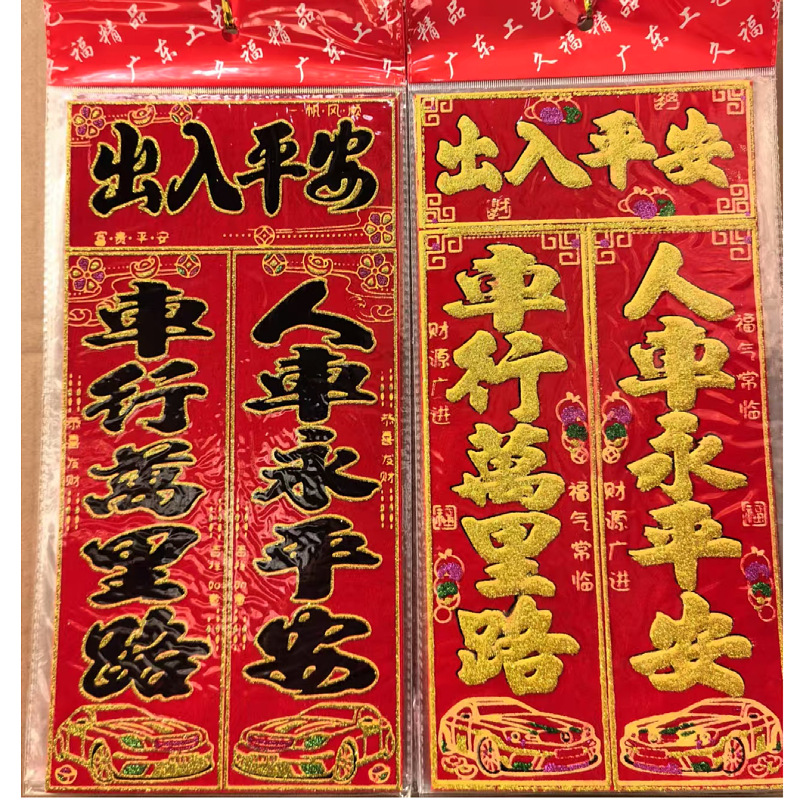 久福精品
广东工艺
久福精品
广东工艺
一帆风顺
出入平安
富贵平安
車行萬里路
人車永平安
恭喜发财
恭喜友财
出入平安
車行萬里路
人車永平安
财源广进
福气常临
财源广进
福气常临
福